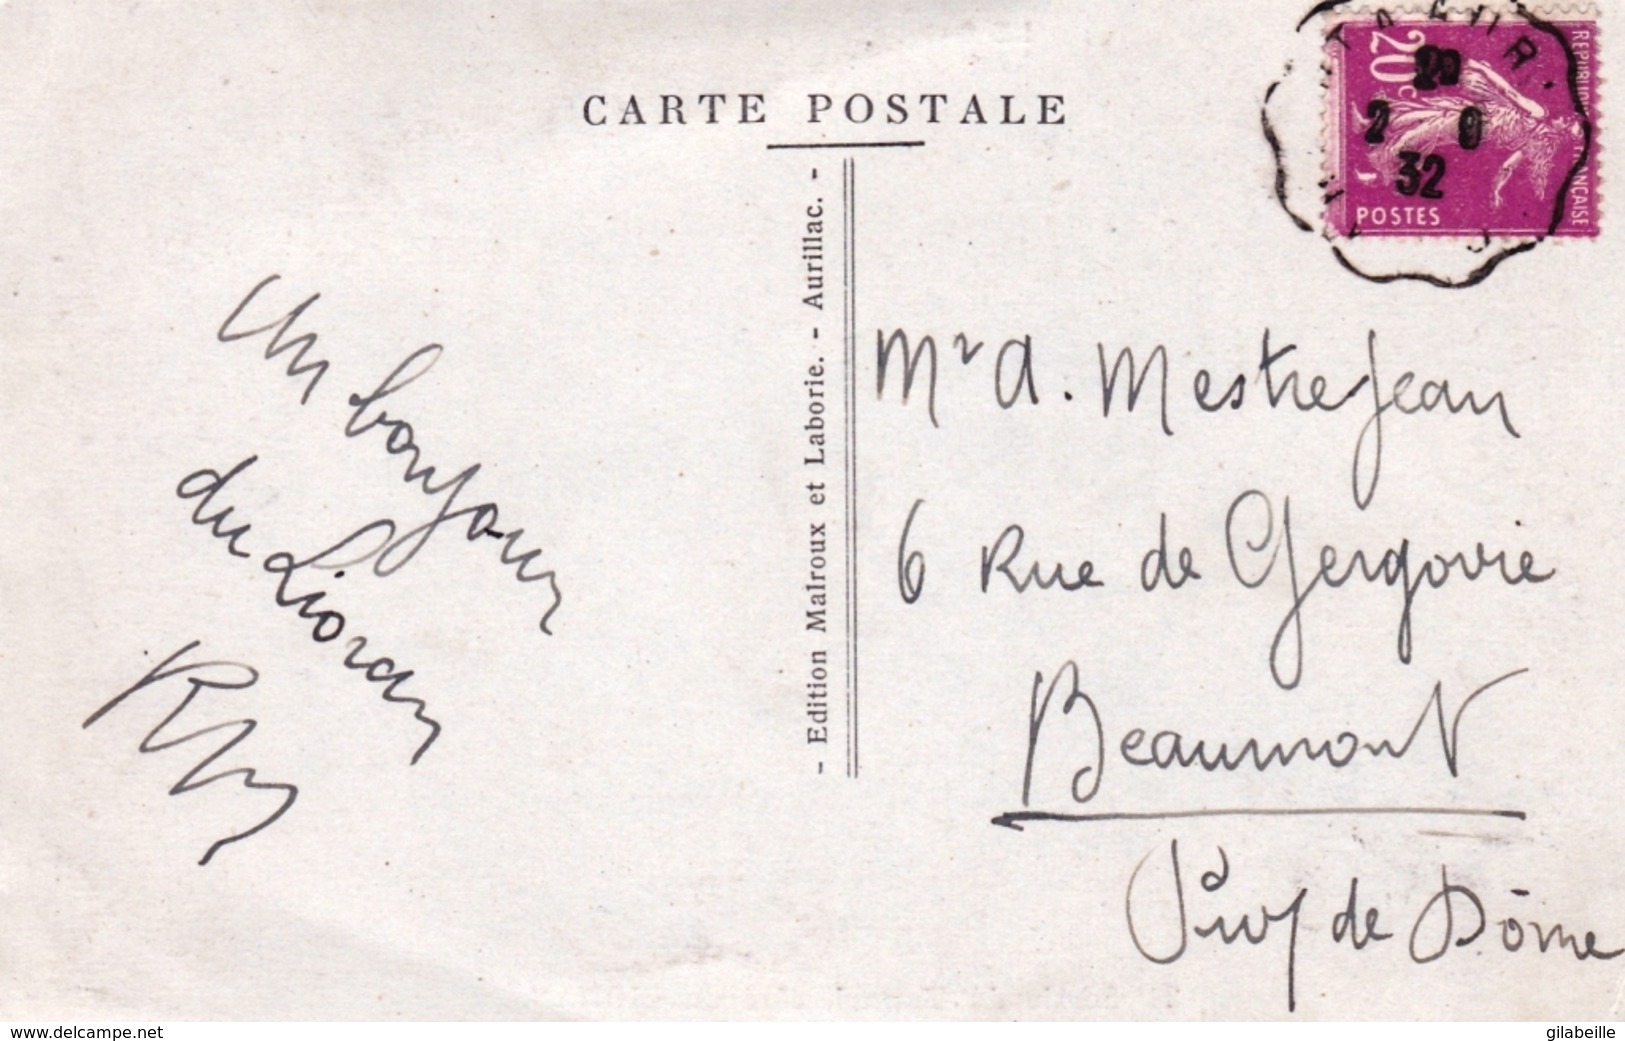 CARTE POSTALE
20c
REPUBLIQUE FRANÇAISE
POSTES
32
- Edition Malroux et Laborie. - Aurillac. -
Un bonjour
du Lioran
Mr A. Mestrejean
6 Rue de Gergovie
Beaumont
Puy de Dôme
www.delcampe.net
gilabeille